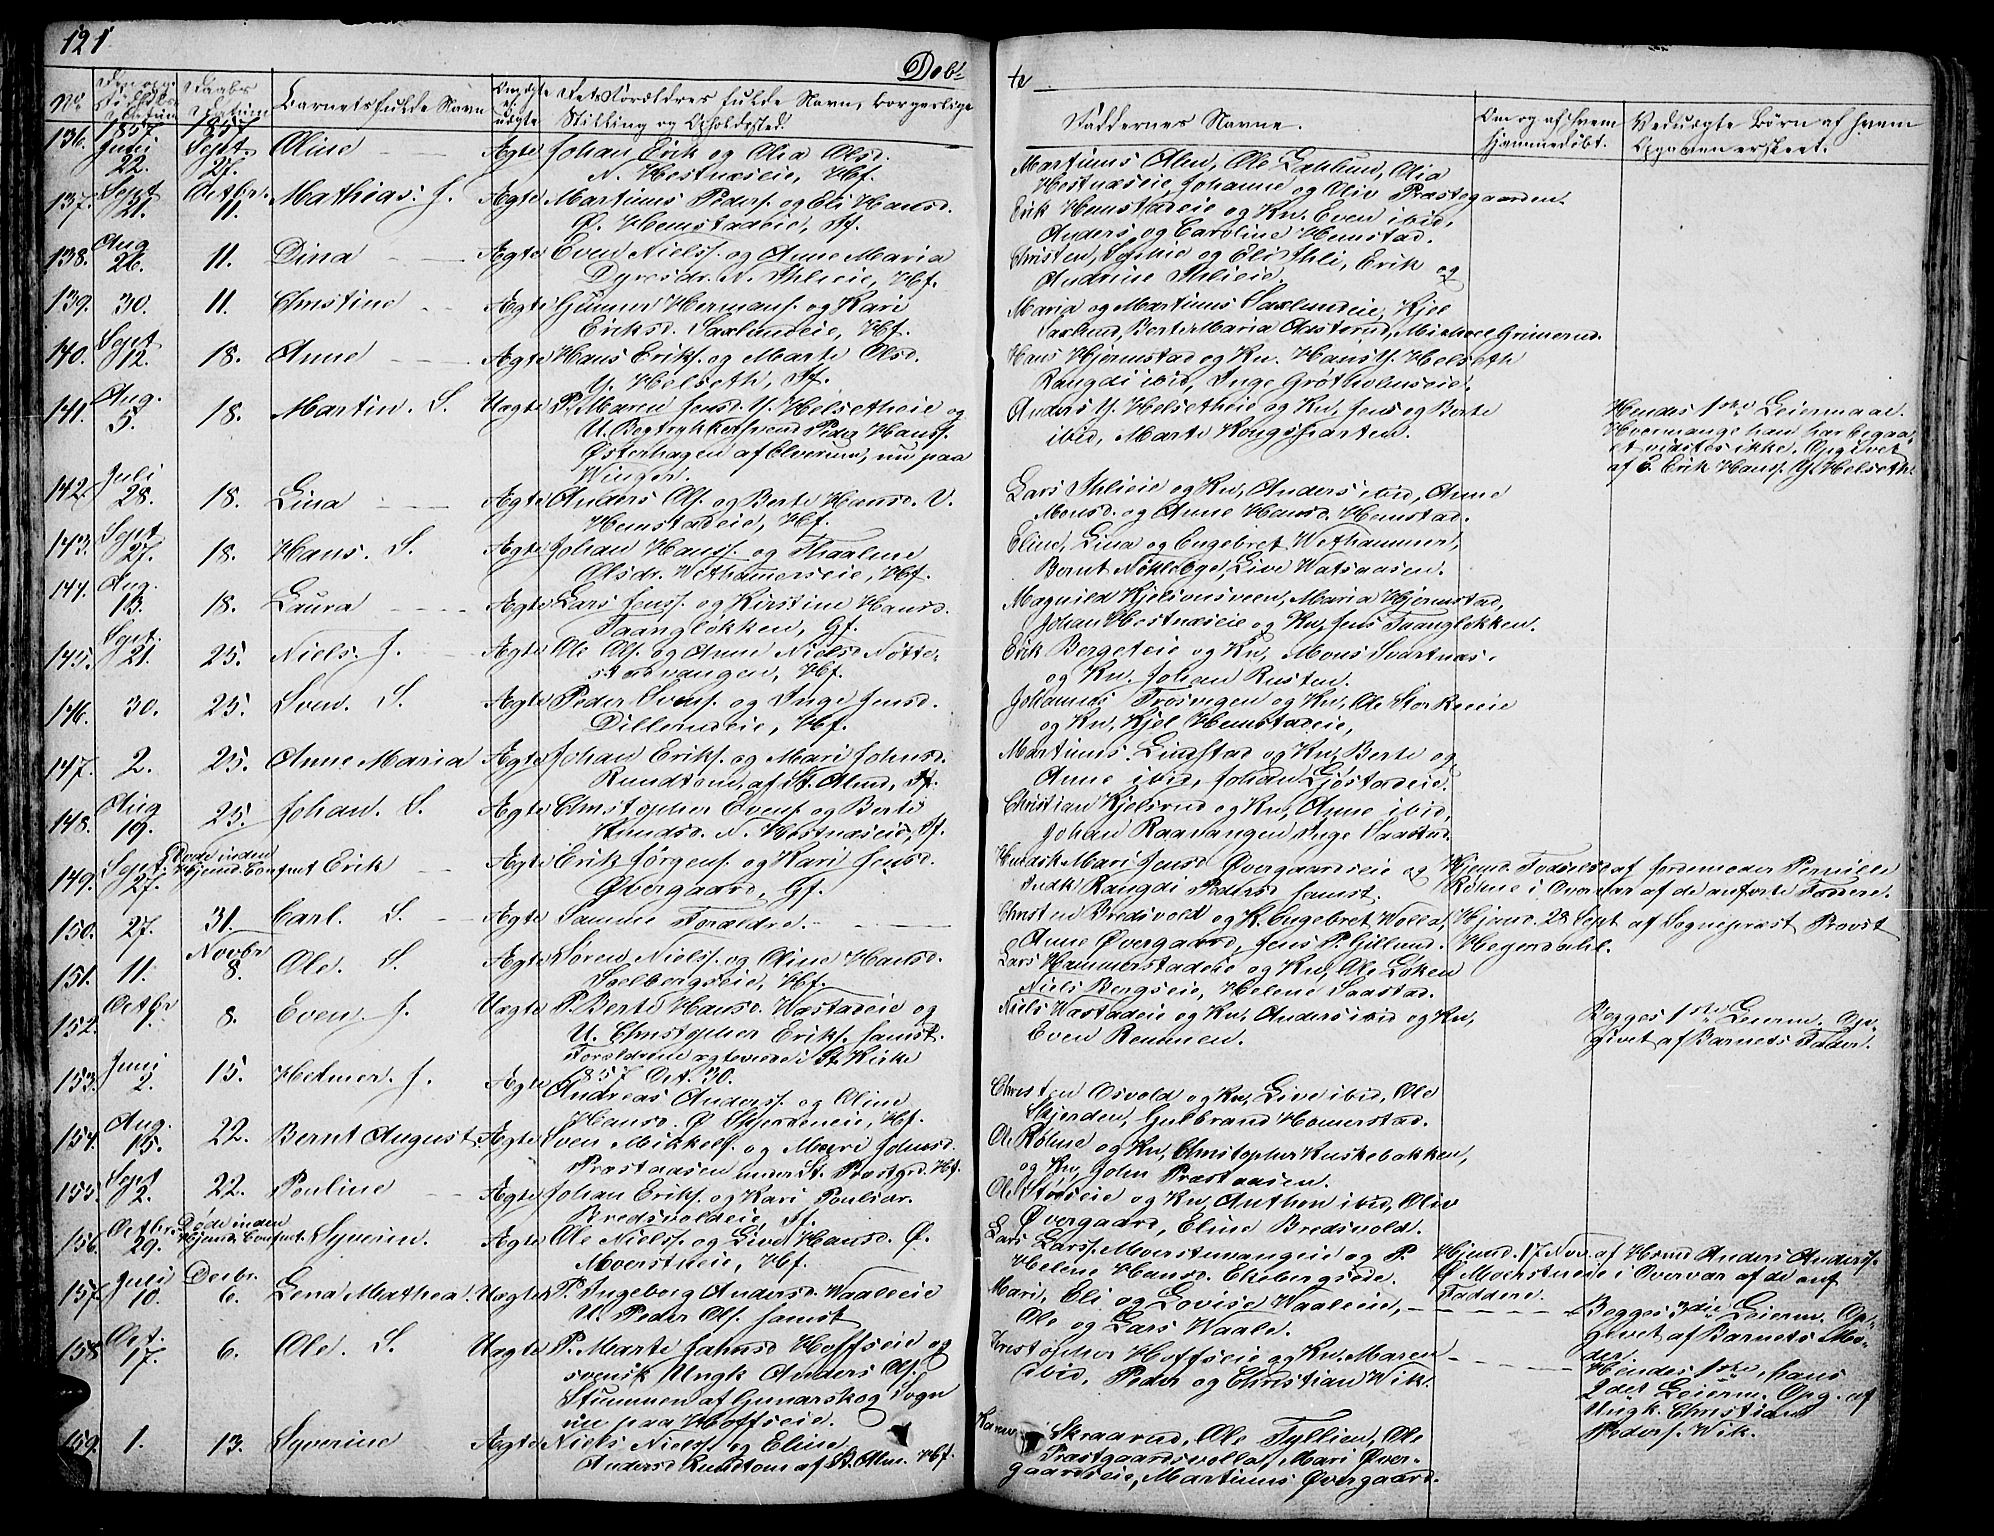 121
Døb
te
No
Datum
Daabs
Datum
Barnets fulde Navn
Ægte
el.
uægte
Forældres fulde Navn, borgerlige
Stilling og Opholdssted.
Faddernes Navne.
Om og af hvem
hjemmedøbt.
Ved uægte Børn af hvem
Opgaven er skeet.
136. 1857 Juni 22. 1857 Sept. 27. Oline Ægte Johan Erik og Olia Olsd.
N. Hestnæseie, Hf.
Martinus Alm, Ole Dahlund, Olia
Hestnæseie, Johanne og Oliv Præstegaarden.
137. Sept 21. Octbr. 11. Mathias. J. Ægte Martinus Peders. og Eli Hansd.
Ø. Hemstadeie, Ff.
Erik Hemstadeie og Kn. Even ibid,
Anders og Caroline Hemstad.
138. Aug 26. 11. Dina Ægte Even Nielss. og Anne Maria
Dyresdr. N. Thlieie, Hf.
Christen, Sophie og Eli Thli, Erik og
Andrine Thlieie.
139. 30. 11. Christine Ægte Gunner Hermans. og Kari
Eriksd. Saxlundeie, Hf.
Maria og Martinus Saxlundeie, Kjel
Saxlund, Berte Maria Austerud, Michael Grunerud.
140. Sept 12. 18. Anne Ægte Hans Eriks. og Marte Olsd.
Y. Helseth, Ff.
Hans Hjermstad og Kn. Hans Y. Helseth
Rangdi ibid, Inge Grøtholmseie.
141. Aug. 5. 18. Martin. S. Uægte P. Maren Jensd. Y. Helsetheie og
U. Bogtrykkersvend Peder Hanss.
Østerhagen af Elverum, nu paa
Winger.
Anders Y. Helsetheie og Kn, Jens og Berte
ibid, Marte Kongsparten.
Hendes 1ste Leiermaal.
Hvormange han har begaa-
et vidstes ikke. Opgivet
af E. Erik Hans. Y. Helseth.
142. Juli 28. 18. Lina Ægte Anders Ols. og Berte Hansd. V.
Hemstadeie, Hf.
Lars Thlieie og Kn, Anders ibid, Anne
Monsd. og Anne Hansd. Hemstad.
143. Sept 27. 18. Hans. S. Ægte Johan Hanss. og Thaaline
Olsdr. Wethammerseie, Hf.
Eline, Lina og Engebret Wethammer,
Bernt Nøkleby, Live Watsaasen.
144. Aug. 13. 18. Laura Ægte Lars Jenss. og Kirstine Hansd.
Taangløkken, Gf.
Magnild Kjelsonsveen, Maria Hjermstad,
Johan Hestnæseie og Kn, Jens Taangløkken.
145. Sept. 21. 25. Niels. J. Ægte Ole Ols. og Anne Nielsd Nøtte-
stadvangen, Hf.
Erik Bergeteie og Kn, Mons Svartnæs
og Kn. Johan Rusten.
146. 30. 25. Sven. S. Ægte Peder Svens. og Inge Jensd.
Dillerudeie, Hf.
Johannes Frøsvegen og Kn, Ole Stor Reeie
og Kn, Kjel Hemstadeie,
147. 2. 25. Anne Maria Ægte Johan Eriks. og Mari Johnsd.
Rundtom, af St. Almd, Ff.
Martinus Lindstad og Kn, Berte og
Anne ibid, Johan Gjøstadeie.
148. Aug 19. 25. Johan. S. Ægte Christopher Evens. og Berte
Knudsd. N. Hestnæseie, Ff.
Christian Kjelsrud og Kn, Anne ibid,
Johan Raavangen, Inge Saastad.
149. Sept. 27. Døde inden Hjemd. Confirmt Erik Ægte Erik Jørgens. og Kari Jensd.
Øvergaard, Gf.
Mari Jensd. Øvergaardseie og
Rangdi Pedersd samst.
Hjemd. Fødselsd af Jordemoder Pernille
Røhne i Overvær af de anførte Faddere.
150. 27. 31. Carl. S. Ægte Samme Forældre.
Christen Bredsvold og K. Engebret Wolla,
Anne Øvergaard, Jens P. Gillund.
Hjemd. 28 Sept af Sognepræst Provst
Hegerdahl.
151. 11. Novbr 8. Ole. S. Ægte Søren Nielss. og Oline Hansd.
Solbergseie, Hf.
Lars Hammerstadeie og Kn, Ole Løken
Niels Bergseie, Helene Saastad.
152. Octbr 1. 8. Even. J. Uægte P. Berte Hansd. Wastadeie og
U. Christopher Eriks. samst.
Forældrene ægteviede i St. Kirke
1857 Oct. 30.
Niels Wastadeie og Kn, Anders ibid og Kn,
Even Remmen.
Begges 1ste Leierm, Op-
givet af Barnets Fader.
153. Juni 2. 15. Helmer. J. Ægte Andreas Anderss. og Oline
Hansd. Ø. Skjerdeneie, Hf.
Christen Osvold og Kn, Live ibid, Ole
Skjerden, Gulbrand Hamerstad.
154. Aug. 15. 22. Bernt August Ægte Sven Mikkels. og Mari Johnsd.
Præstaasen under St. Præstgd. Hf.
Ole Røhne og Kn, Christopher Kuskebakken,
og Kn, John Præstaasen.
155. Sept 2. 22. Pouline Ægte Johan Eriks. og Kari Poulsdr.
Bredsvoldeie, Ff.
Ole Støseie og Kn, Anthon ibid, Oliv
Øvergaard, Eline Bredsvold.
156. Octbr. 29. Døde inden Hjemd. Confirmt. Syverin. Ægte Ole Nielss. og Live Hansd. Ø.
Moerstueie, Hf.
Lars Larss. Moerstuvangeie og P.
Helene Hansd. Ekebergseie.
Hjemd. 17 Nov. af Hmd Anders Anders.
Ø. Moerstueie i Overvær af de anf
Faddere.
157. Juli 10. Decbr. 6. Lena Mathea. Uægte P. Ingeborg Andersd. Waaleeie
U. Peder Ols. samst
Mari, Eli og Lovise Waaleeie,
Ole og Lars Waale.
Begges 3die Leierm. Op-
givet af Barnets Mo-
der.
158 Oct. 17. 6. Ole. S. Uægte P. Marte Jahnsd Hoffseie og
svensk Ungk Anders Ols.
Stummen af Gunarskog Sogn
nu paa Hoffseie.
Christopher Hoffseie og Kn. Maren
ibid, Peder og Christian Wik.
Hendes 1ste, hans
2det Leierm. Opg. af
Ungk. Christian
Peders. Wik.
159. 1. 13. Syverine Ægte Niels Nielss. og Eline
Andersd Rundtom af St. Alm. Hf.
Karen Skraarud, Ole Tyllien, Ole
Præstgaardsvolla, Mari Øver-
gaardseie, Martinus Øvergaard.